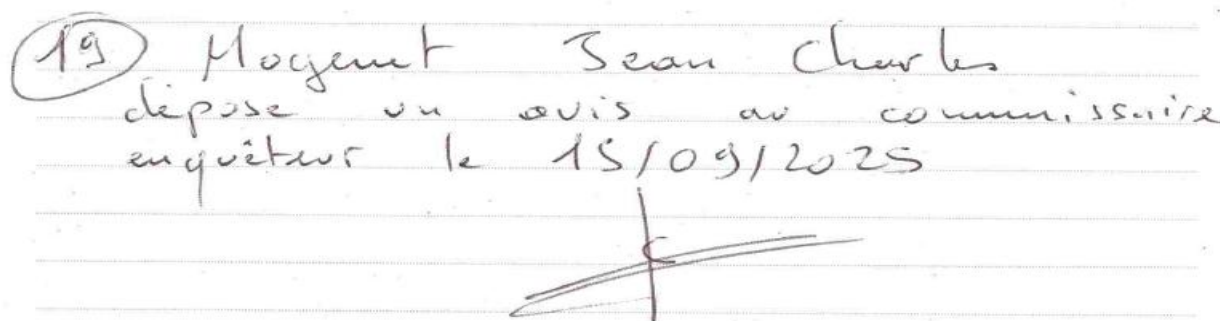 19 Mogenet Jean Charles
dépose un avis au commissaire
enquêteur le 15/09/2025